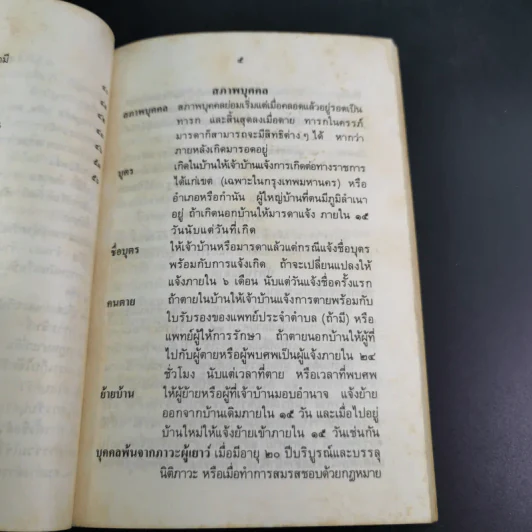 มี
๕
สภาพบุคคล
สภาพบุคคล สภาพบุคคลย่อมเริ่มแต่เมื่อคลอดแล้วอยู่รอดเป็น
ทารก และสิ้นสุดลงเมื่อตาย ทารกในครรภ์
มารดาก็สามารถจะมีสิทธิต่าง ๆ ได้ หากว่า
ภายหลังเกิดมารอดอยู่
บุตร เกิดในบ้านให้เจ้าบ้านแจ้งการเกิดต่อทางราชการ
ได้แก่เขต (เฉพาะในกรุงเทพมหานคร) หรือ
อำเภอหรือกำนัน ผู้ใหญ่บ้านที่ตนมีภูมิลำเนา
อยู่ ถ้าเกิดนอกบ้านให้มารดาแจ้ง ภายใน ๑๕
วันนับแต่วันที่เกิด
ชื่อบุตร ให้เจ้าบ้านหรือมารดาแล้วแต่กรณีแจ้งชื่อบุตร
พร้อมกับการแจ้งเกิด ถ้าจะเปลี่ยนแปลงให้
แจ้งภายใน ๖ เดือน นับแต่วันแจ้งชื่อครั้งแรก
คนตาย ถ้าตายในบ้านให้เจ้าบ้านแจ้งการตายพร้อมกับ
ใบรับรองของแพทย์ประจำตำบล (ถ้ามี) หรือ
แพทย์ผู้ให้การรักษา ถ้าตายนอกบ้านให้ผู้ที่
ไปกับผู้ตายหรือผู้พบศพเป็นผู้แจ้งภายใน ๒๔
ชั่วโมง นับแต่เวลาที่ตาย หรือเวลาที่พบศพ
ย้ายบ้าน ให้ผู้ย้ายหรือผู้ที่เจ้าบ้านมอบอำนาจ แจ้งย้าย
ออกจากบ้านเดิมภายใน ๑๕ วัน และเมื่อไปอยู่
บ้านใหม่ให้แจ้งย้ายเข้าภายใน ๑๕ วันเช่นกัน
บุคคลพ้นจากภาวะผู้เยาว์ เมื่อมีอายุ ๒๐ ปีบริบูรณ์และบรรลุ
นิติภาวะ หรือเมื่อทำการสมรสชอบด้วยกฎหมาย